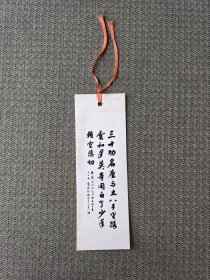 三十功名塵与土八千里路
雲和月莫等閒白了少年
頭空悲切